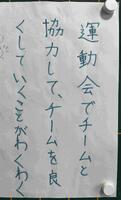 運動会でチームと
協力して、チームを良
くしていくことがわくわく